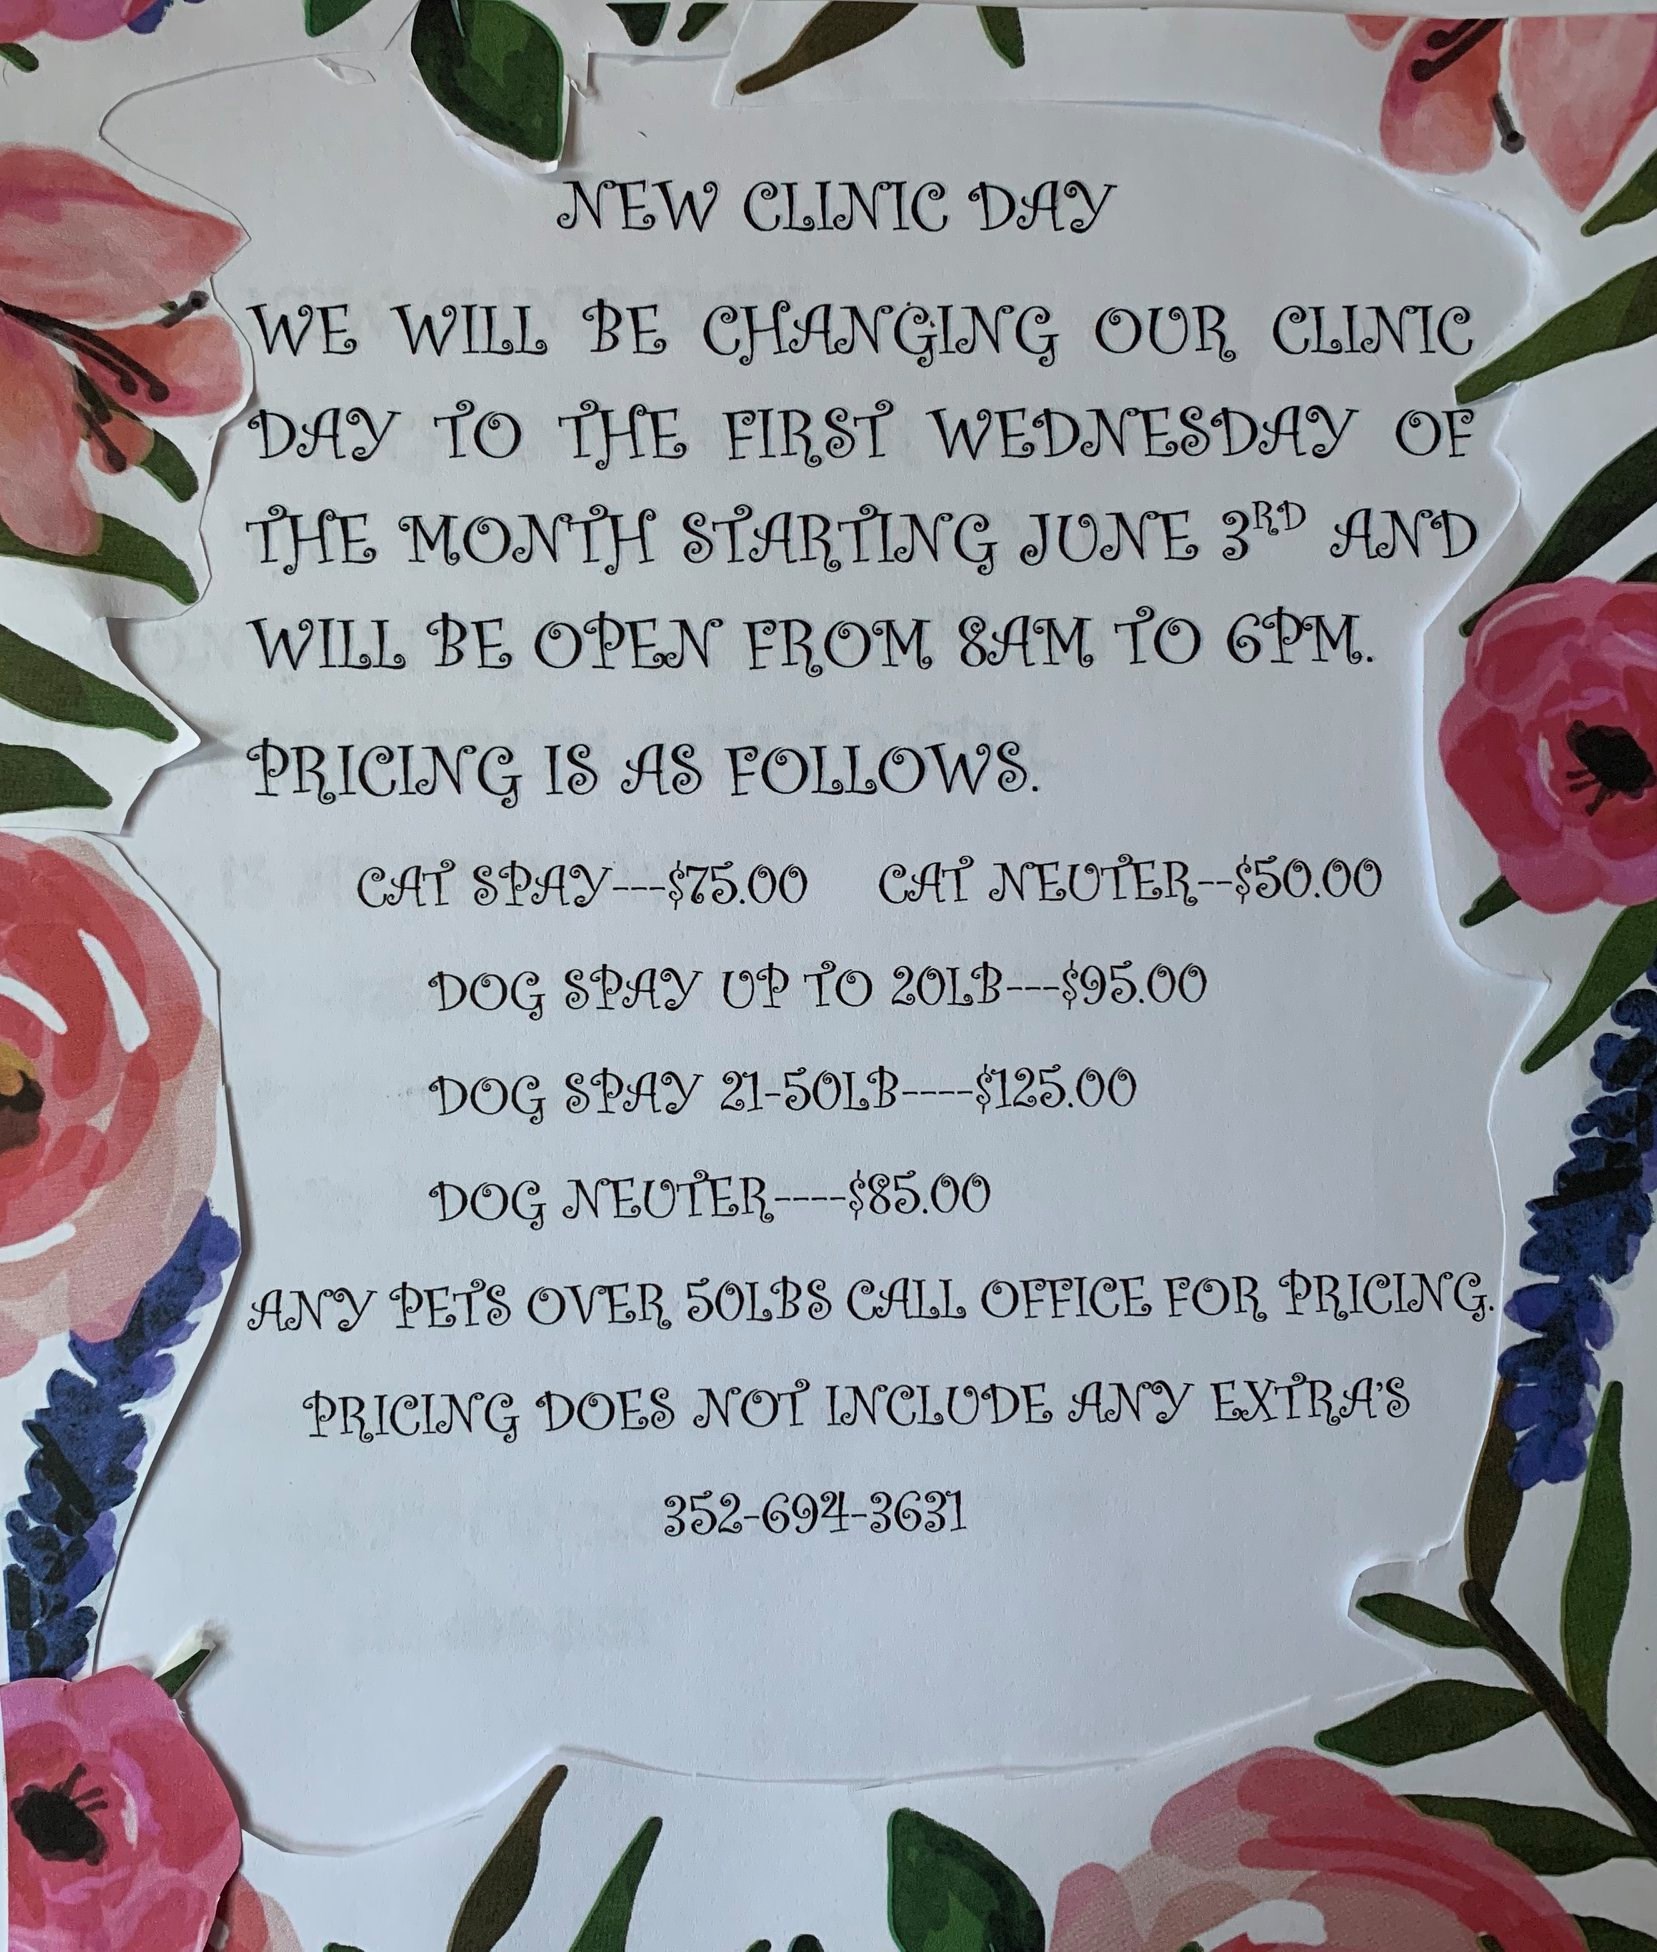 NEW CLINIC DAY
WE WILL BE CHANGING OUR CLINIC
DAY TO THE FIRST WEDNESDAY OF
THE MONTH STARTING JUNE 3RD AND
WILL BE OPEN FROM 8AM TO 6PM.
PRICING IS AS FOLLOWS.
CAT SPAY---$75.00 CAT NEUTER--$50.00
DOG SPAY UP TO 20LB---$95.00
DOG SPAY 21-50LB----$125.00
DOG NEUTER----$85.00
ANY PETS OVER 50LBS CALL OFFICE FOR PRICING.
PRICING DOES NOT INCLUDE ANY EXTRA'S
352-694-3631